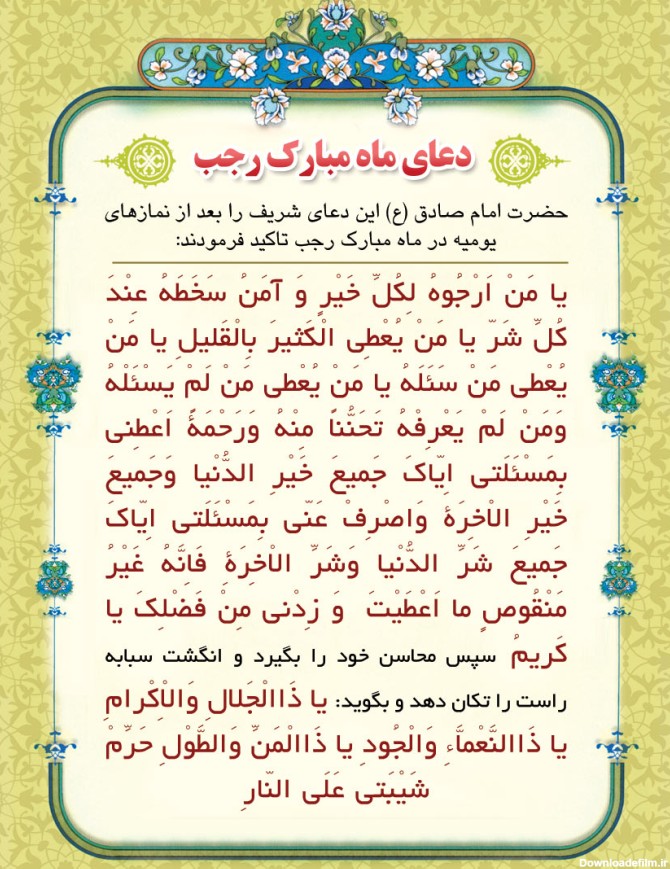 دعای ماه مبارک رجب
حضرت امام صادق (ع) این دعای شریف را بعد از نمازهای
یومیه در ماه مبارک رجب تاکید فرمودند:
یا مَنْ اَرْجُوهُ لِکُلِّ خَیْرٍ وَ آمَنُ سَخَطَهُ عِنْدَ
کُلِّ شَرّ یا مَنْ یُعْطِی الْکَثیرَ بِالْقَلیلِ یا مَنْ
یُعْطی مَنْ سَئَلَهُ یا مَنْ یُعْطی مَنْ لَمْ یَسْئَلْهُ
وَمَنْ لَمْ یَعْرِفْهُ تَحَنُّناً مِنْهُ وَرَحْمَةً اَعْطِنی
بِمَسْئَلَتی اِیّاکَ جَمیعَ خَیْرِ الدُّنْیا وَجَمیعَ
خَیْرِ الْأخِرَةِ وَاصْرِفْ عَنّی بِمَسْئَلَتی اِیّاکَ
جَمیعَ شَرِّ الدُّنْیا وَشَرِّ الْأخِرَةِ فَاِنَّهُ غَیْرُ
مَنْقُوصٍ ما اَعْطَیْتَ وَ زِدْنی مِنْ فَضْلِکَ یا
کَریمُ سپس محاسن خود را بگیرد و انگشت سبابه
راست را تکان دهد و بگوید: یا ذَاالْجَلالِ وَالْاِکْرامِ
یا ذَاالنَّعْماَّءِ وَالْجُودِ یا ذَاالْمَنِّ وَالطَّوْلِ حَرِّمْ
شَیْبَتی عَلَی النّارِ
Downloadefilm.ir